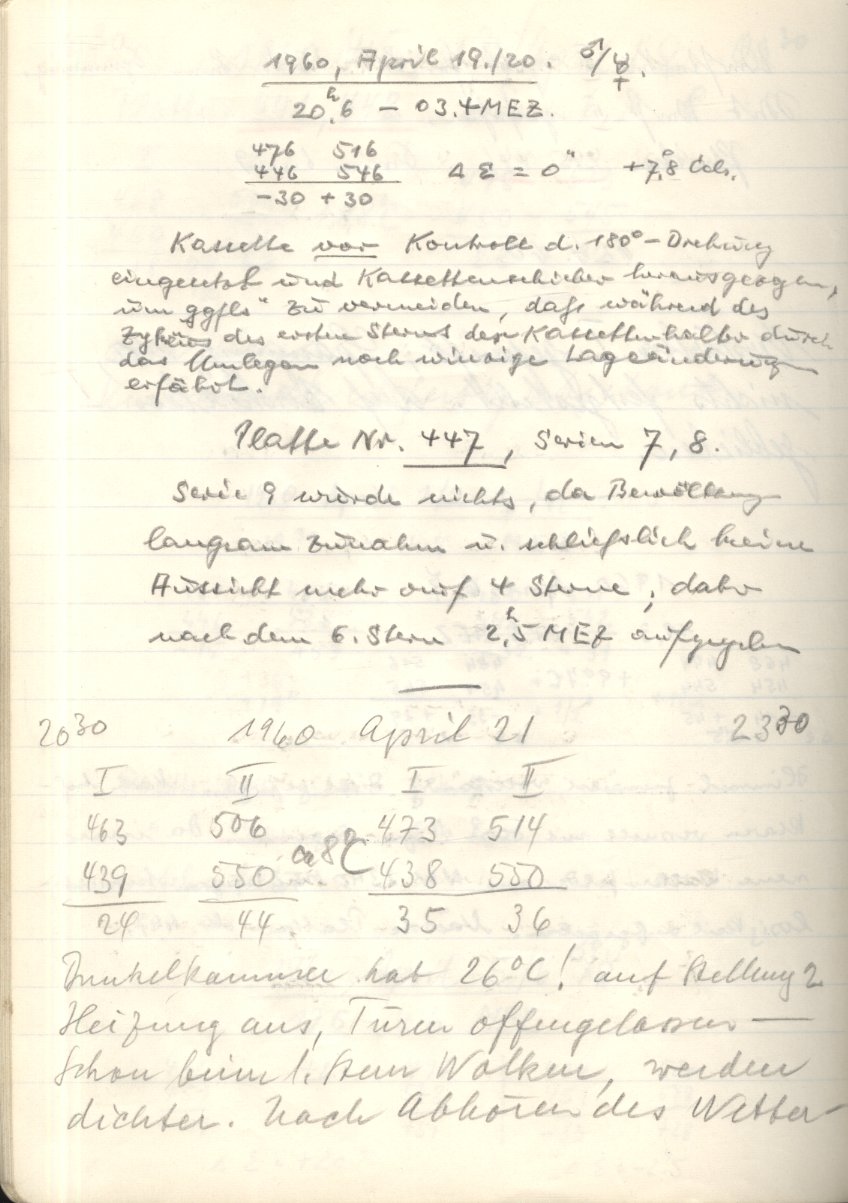 1960, April 19./20. ♂/☿.
20ʰ.6 – 03.4 MEZ.
476 516
446 546 Δ Σ = 0" +7°.8 Cels.
-30 +30
Kassette vor Kontrolle d. 180°-Drehung
eingesetzt und Kassettenschieber herausgezogen,
um ggfls" zu vermeiden, daß während des
Zyklus des ersten Sterns der Kassettenhalter durch
das Umlegen noch winzige Lageänderung
erfährt.
Platte Nr. 447, Serien 7, 8.
Serie 9 wurde nichts, da Bewölkung
langsam zunahm u. schließlich keine
Aussicht mehr auf 4 Sterne; daher
nach dem 6. Stern 2ʰ.5 MEZ aufgegeben
20³⁰ 1960 April 21 23³⁰
I II I II
463 506 473 514
ca 8°C
439 550 438 550
24 44 35 36
Dunkelkammer hat 26°C! auf Stellung 2
Heizung aus, Türen offengelassen —
Schon beim 1. Stern Wolken, werden
dichter. Nach Abhören des Wetter-